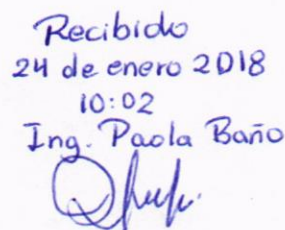 Recibido
24 de enero 2018
10:02
Ing. Paola Baño